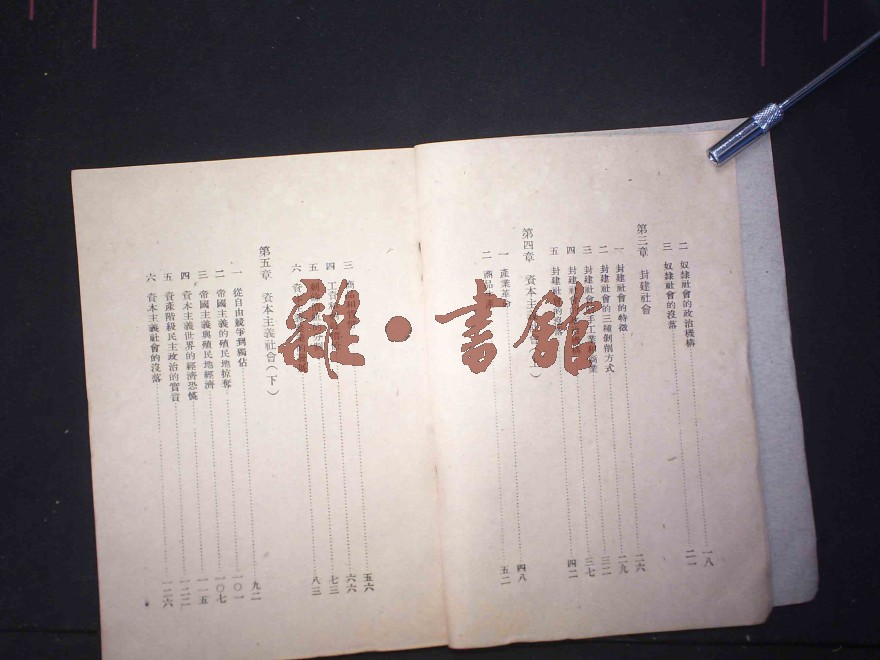 二 奴隸社會的政治機構……一八
三 奴隸社會的沒落……二一
第三章 封建社會
一 封建社會的特徵……二六
二 封建社會的三種剝削方式……二九
三 封建社會 手工業 商業……三二
四 封建社……三七
五 封建社會的 ……四二
第四章 資本主義 上）
一 產業革命……四八
二 商品……五二
三 商品……五六
四 工資……六六
五 ……七三
六 資……八三
第五章 資本主義社會（下）
一 從自由競爭到獨佔……九二
二 帝國主義的殖民地掠奪……一〇一
三 帝國主義與殖民地經濟……一〇七
四 資本主義世界的經濟恐慌……一一五
五 資產階級民主政治的實質……一二二
六 資本主義社會的沒落……一二六
雜·書館